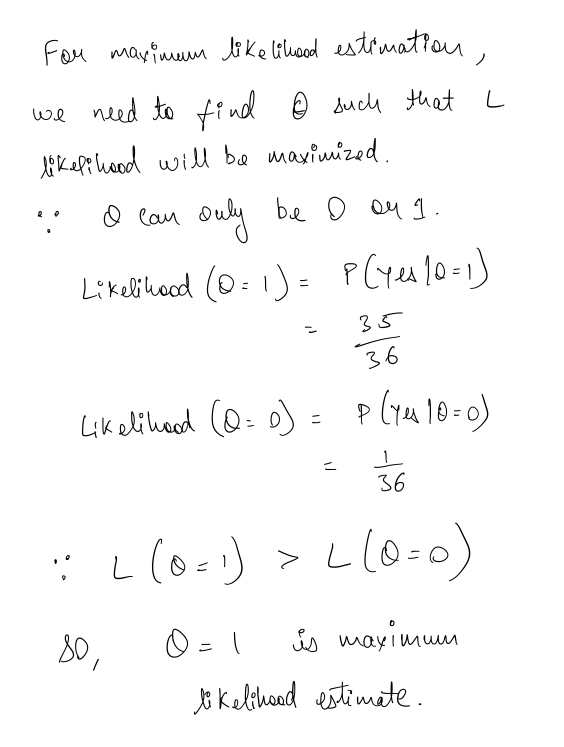 For maximum likelihood estimation,
we need to find θ such that L
likelihood will be maximized.
∵ θ can only be 0 or 1.
Likelihood (θ = 1) = P(Yes | θ = 1)
= 35/36
Likelihood (θ = 0) = P(Yes | θ = 0)
= 1/36
∵ L (θ = 1) > L (θ = 0)
SO, θ = 1 is maximum
likelihood estimate.